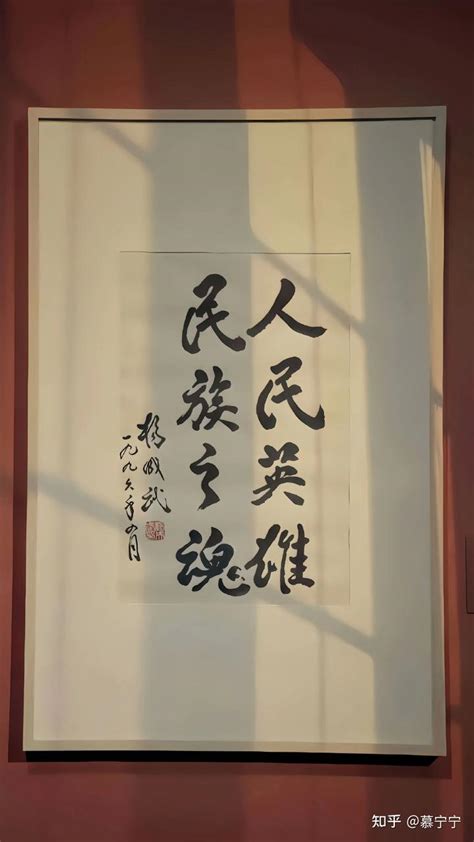 人民英雄
民族之魂
杨成武
一九九六年四月
知乎 @慕宁宁